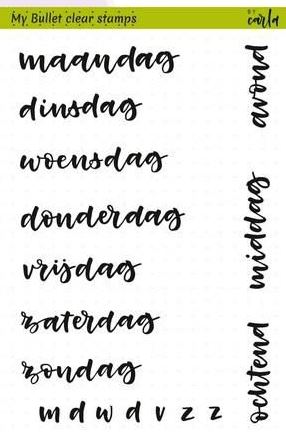 My Bullet clear stamps
BY carla
maandag
dinsdag
woensdag
donderdag
vrijdag
zaterdag
zondag
m d w d v z z
avond
middag
ochtend